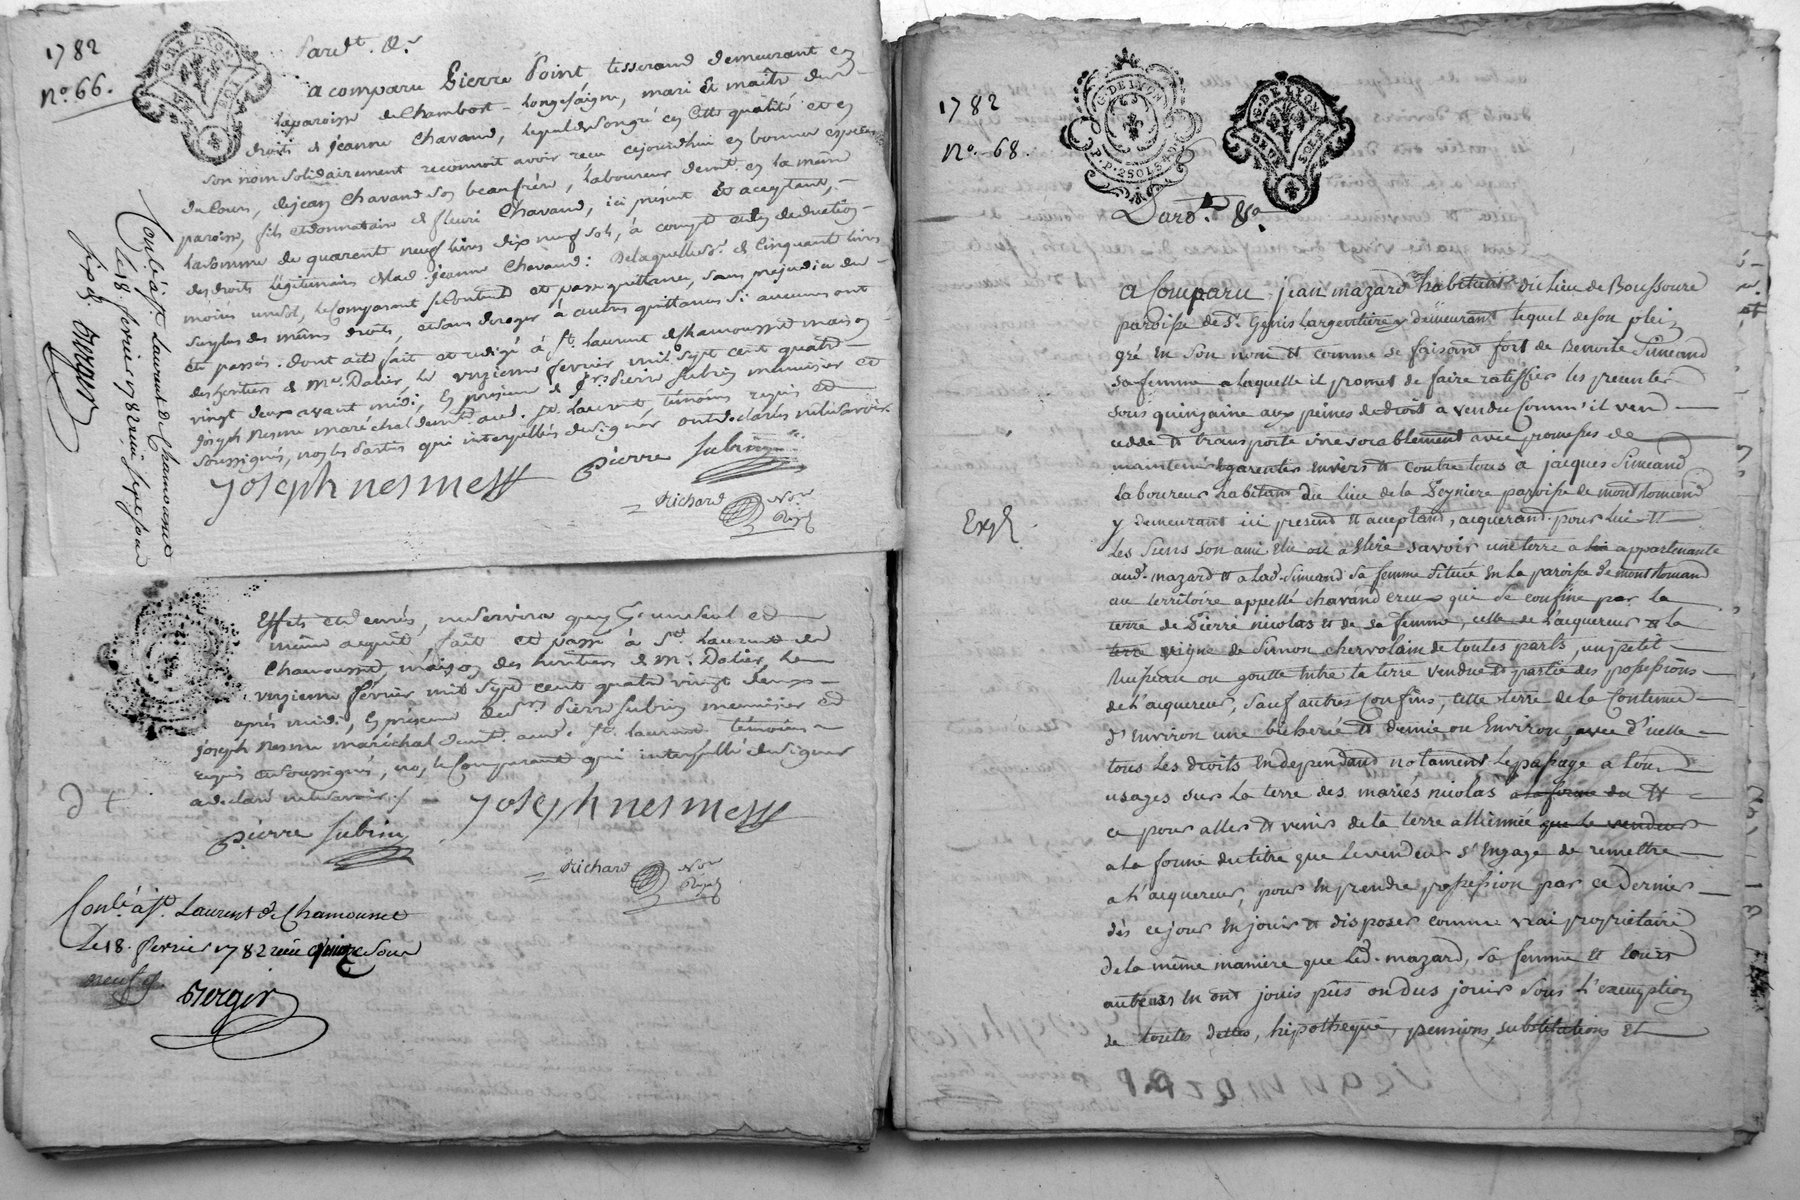 1782
No. 66.
G. DE LYON
DEUX SOLS
Pard.t &.
a comparu Pierre Point tisserand demeurant en
la paroisse de Chambost-Longesaigne, mari et maître des
droits de Jeanne Chavand, lequel de son gré en cette qualité et en
son nom solidairement reconnoit avoir reçu cejourdhui en bonnes espèces
du cours, de jean Chavand son beaufrère, laboureur demt. en la même
paroisse, fils et donnataire de fleuri Chavand, ici présent et aceptant,
la somme de quarent neuf livres dix neuf sols, à compte et en déduction
des droits légitimaires de lad. jeanne Chavand: De laquelle se. de Cinquant livres
moins un sol, le Comparant se Contente et passe quittance, sans préjudice du
surplus des mêmes droits, et sans deroger à autres quittances si aucunes ont
été passés. dont acte fait et rédigé à St. Laurent de Chamousset maison
des héritiers de Me. Dalier, le onzieme fevrier mil sept cent quatre
vingt deux avant midi, en présence de Srs. Pierre Subrin menuisier et
Joseph Nesme maréchal demt. aud. St. Laurent, témoins requis et
soussignés, non les parties qui interpellés de signer ont déclaré ne le savoir
Josephnesme
pierre subrin
Richard Nre
Royal
Conlé à St. Laurent de Chamousset
le 18. fevrier 1782 reçu sept sous
six d. Berger
Effets et denrés, ne servira que
même argent, fait et passé à St. Laurent de
Chamousset, maison des héritiers de Me. Dalier, le
onzieme fevrier mil sept cent quatre vingt deux
après midi, en présence de Srs. Pierre Subrin menuisier et
joseph Nesme maréchal demt. aud. St. laurent témoins
requis et soussignés, non le Comparant qui interpellé de signer
a déclaré ne le savoir
Josephnesme
pierre subrin
Richard Nre
Royal
Conlé à St. Laurent de Chamousset
Le 18. fevrier 1782 reçu quinze sous
neuf d.
Berger
1782
No. 68.
G. DE LYON
G. DE LYON
DEUX SOLS
Pard.t &a.
Exp.
a Comparu jean mazard habitant du lieu de Boussoure
paroisse de St. Genis Largentiere y demeurant lequel de son plein
gré en son nom et comme se faisant fort de Benoite Simeand
sa femme a laquelle il promet de faire ratiffier les presentes
sous quinzaine aux peines de droit a vendu Comm'il vend
cedde et transporte irrevocablement avec promesses de
maintenir et garentir envers et contre tous à jacques Simeand
laboureur habitant du lieu de la Peyniere paroisse de montromand
y demeurant ici present et acceptand, aiquerand pour lui et
les siens son ami elu ou a Elire savoir une terre a lui appartenante
aud. mazard et a lad. Simeand sa femme Située en la paroisse de montromand
au territoire appellé chavand creux qui se confine par la
terre de Pierre nicolas et de sa femme, celle de l'aiquereur et la
terre vigne de Simon chervolain de toutes parts, un petit
ruisseau ou goutte entre la terre vendue et partie des possessions
de l'aiquereur, sauf autres Confins, cette terre de la Contenue
d'Environ une bicherée et demie ou Environ, avec d'icelle
tous les droits en dependand notament le passage a tous
usages sur la terre des mariés nicolas a la forme du et
ce pour aller et venir de la terre alliennée que le vendeur
a la forme du titre que le vendeur s'Engage de remettre
a l'aiquereur, pour en prendre possession par ce dernier
dès ce jour en jouir et disposer comme vrai propriétaire
de la même maniere que led. mazard, sa femme et leurs
auteurs en ont jouis pûs ou dus jouir sous l'exemption
de toutes dettes, hipotheque, pensions, substitutions et